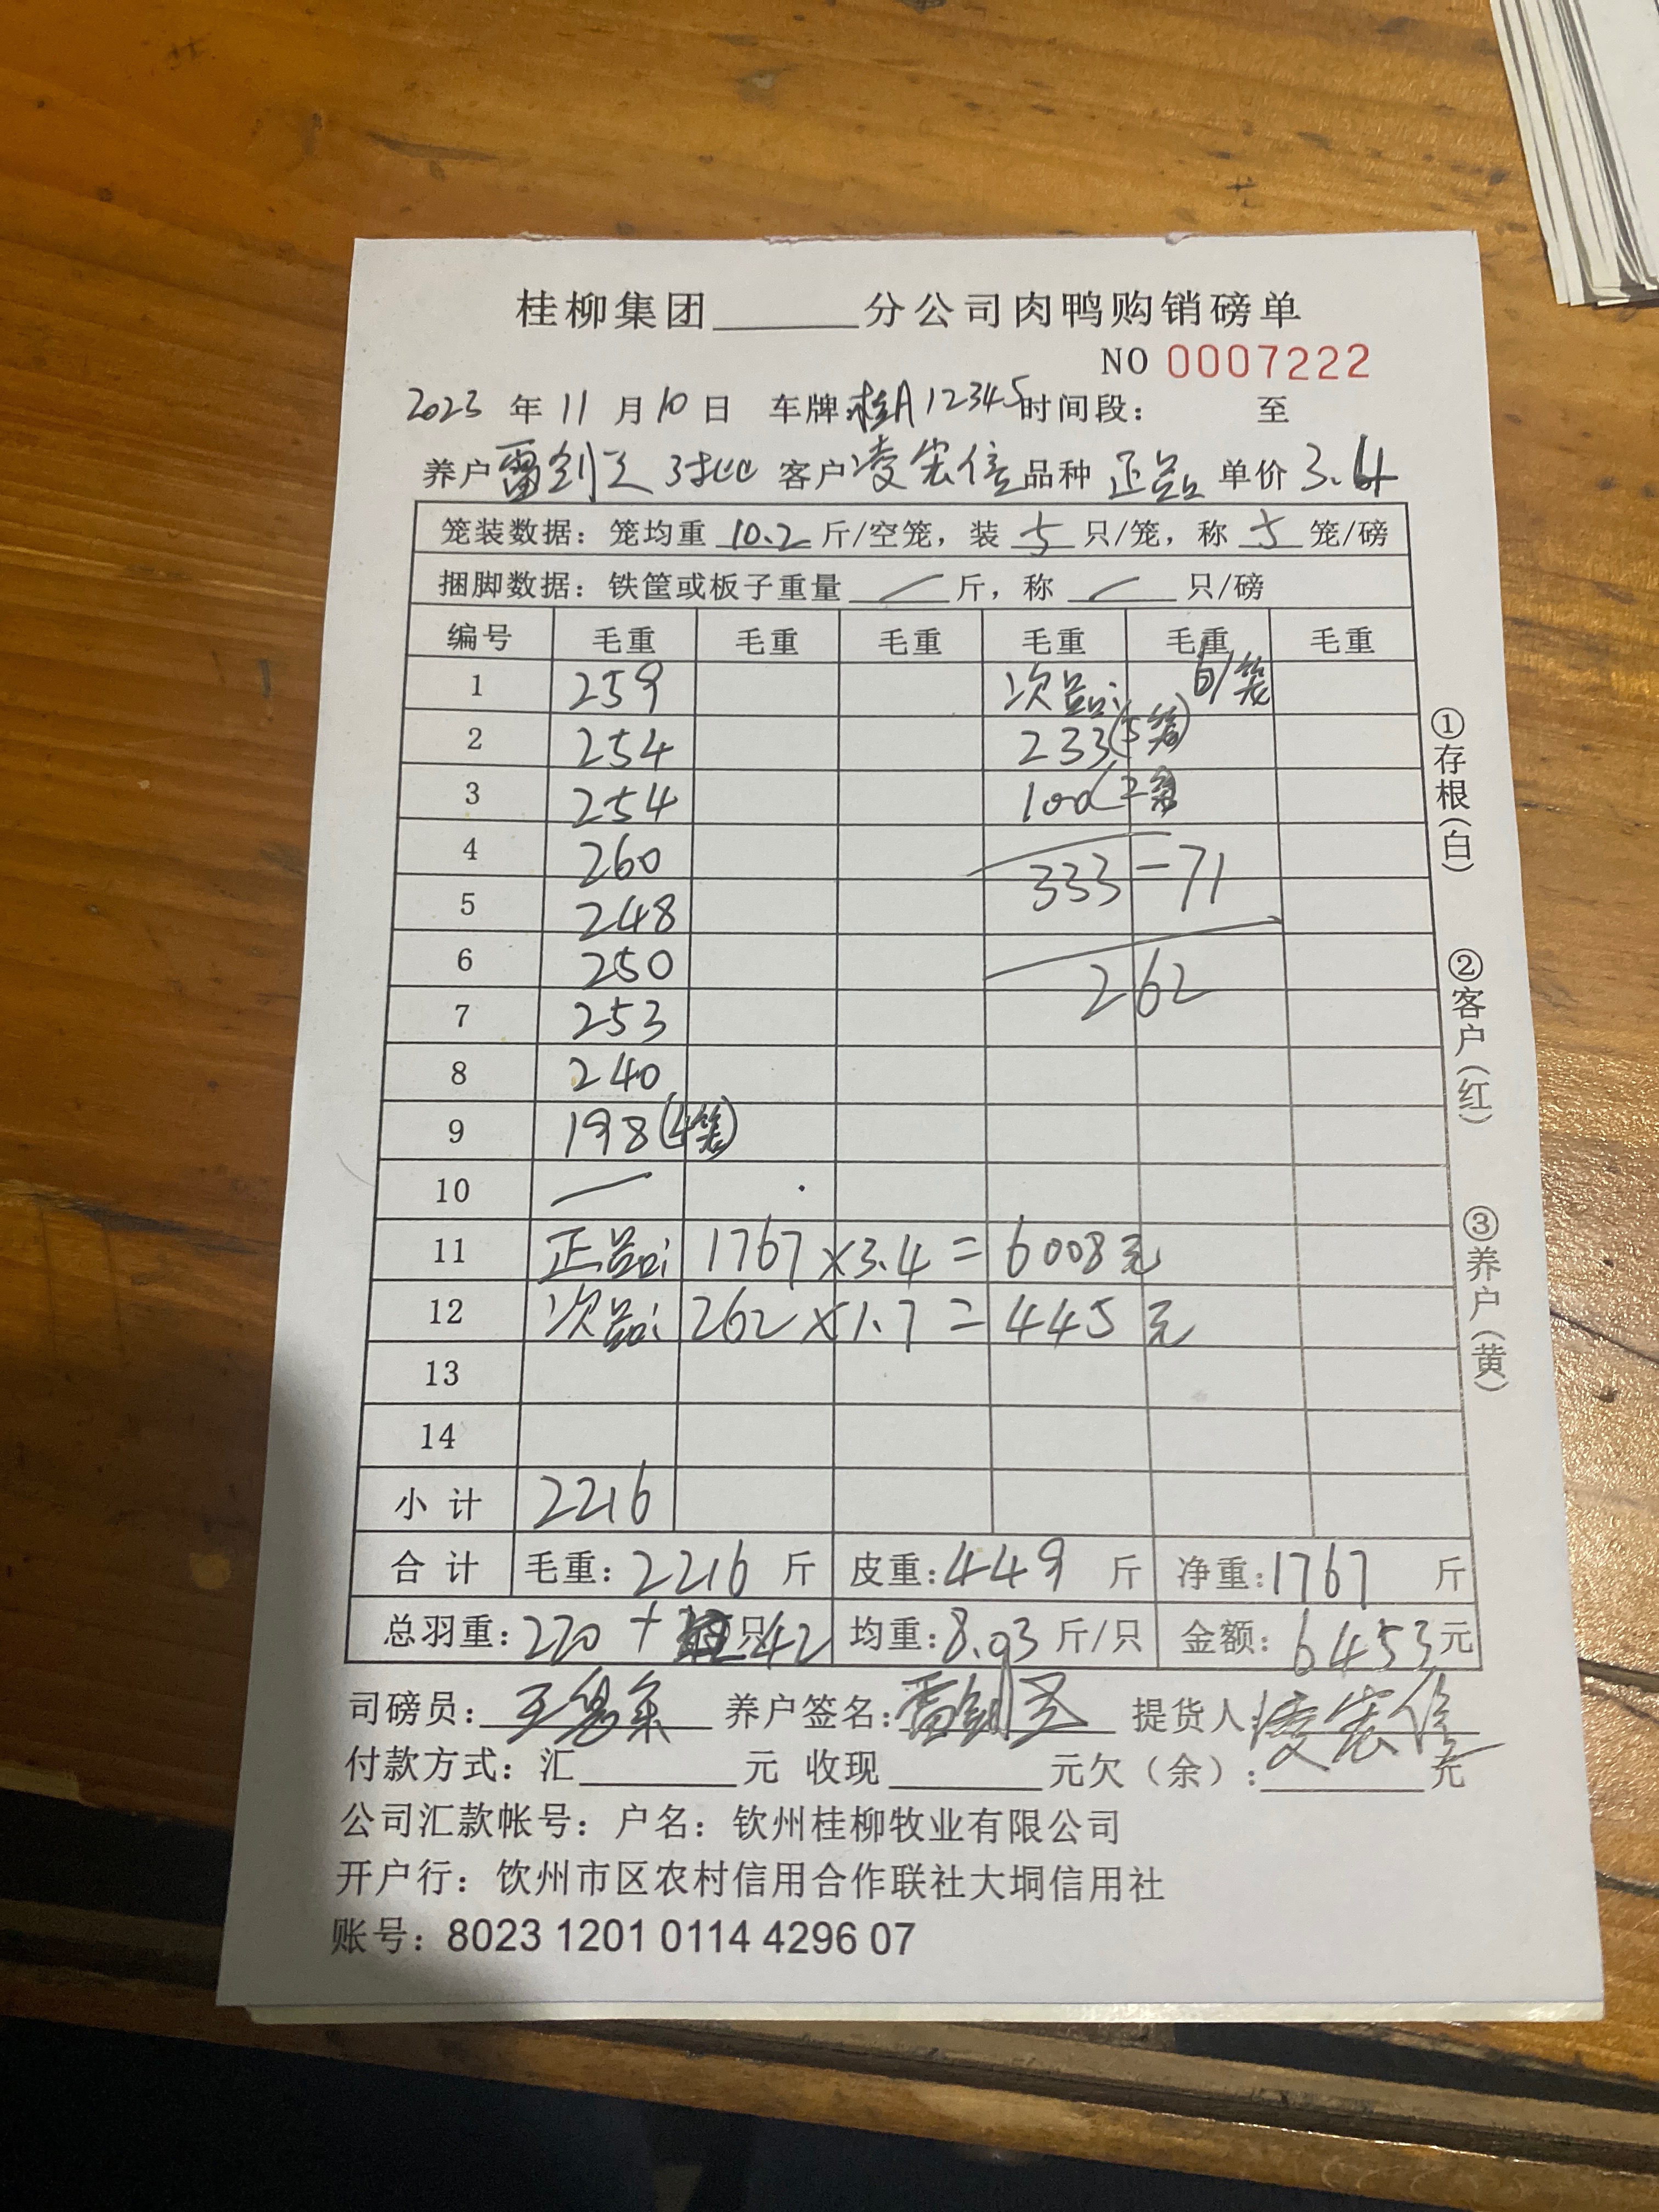 桂柳集团______分公司肉鸭购销磅单
NO 0007222
2023 年 11 月 10 日 车牌:桂A12345 时间段: 至
养户 雷钊 3批 客户 凌宏信 品种 正品 单价 3.4
笼装数据：笼均重 10.2 斤/空笼，装 5 只/笼，称 5 笼/磅
捆脚数据：铁筐或板子重量 / 斤，称 / 只/磅
编号 毛重 毛重 毛重 毛重 毛重 毛重
1 259 次品: 6/笼
2 254 233(5笼)
3 254 100(2笼
4 260
5 248 333-71
6 250
7 253 262
8 240
9 198(4笼)
10 —
11 正品: 1767×3.4=6008元
12 次品: 262×1.7=445元
13
14
小计 2216
合计 毛重: 2216 斤 皮重: 449 斤 净重: 1767 斤
总羽重: 220 + 只 42 均重: 8.03 斤/只 金额: 6453元
司磅员: 养户签名: 雷钊 提货人: 凌宏信
付款方式：汇______元 收现______元欠（余）:______元
公司汇款帐号：户名：钦州桂柳牧业有限公司
开户行：饮州市区农村信用合作联社大垌信用社
账号：8023 1201 0114 4296 07
①存根(白)
②客户(红)
③养户(黄)